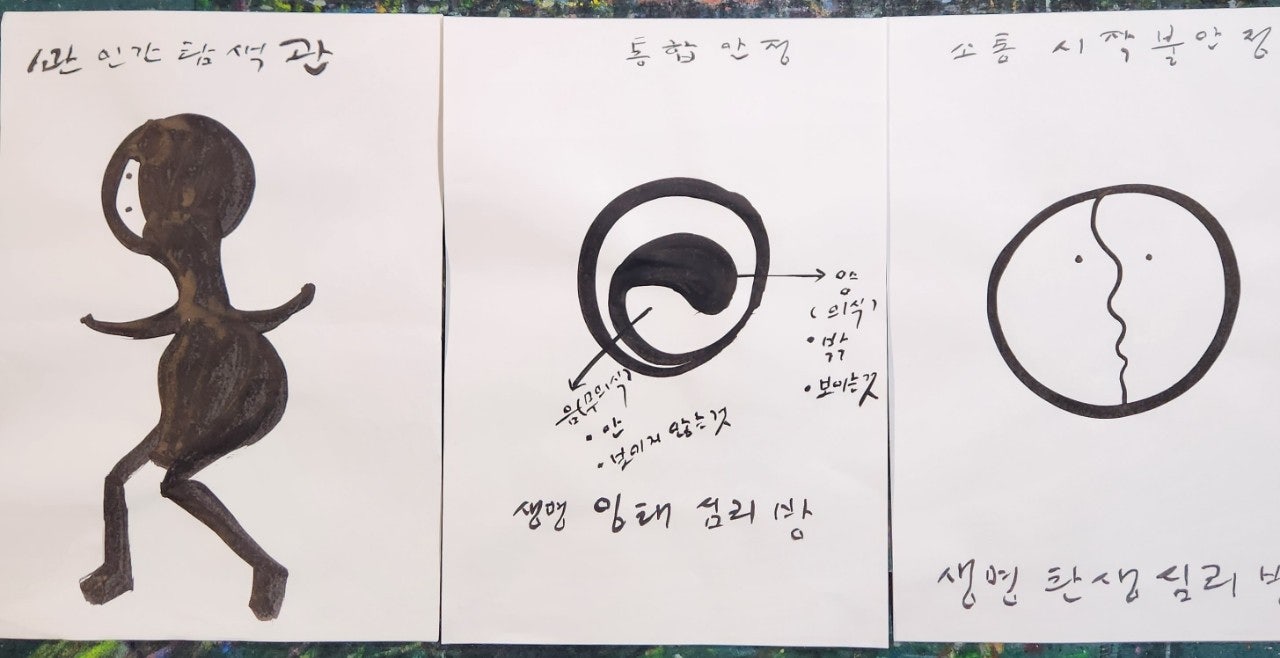 1관 인간 탐색 관
통합 안정
양
(의식)
• 밖
• 보이는 것
음(무의식)
• 안
• 보이지 않는 것
생명 잉태 심리 방
소통 시작 불안정
생명 탄생 심리